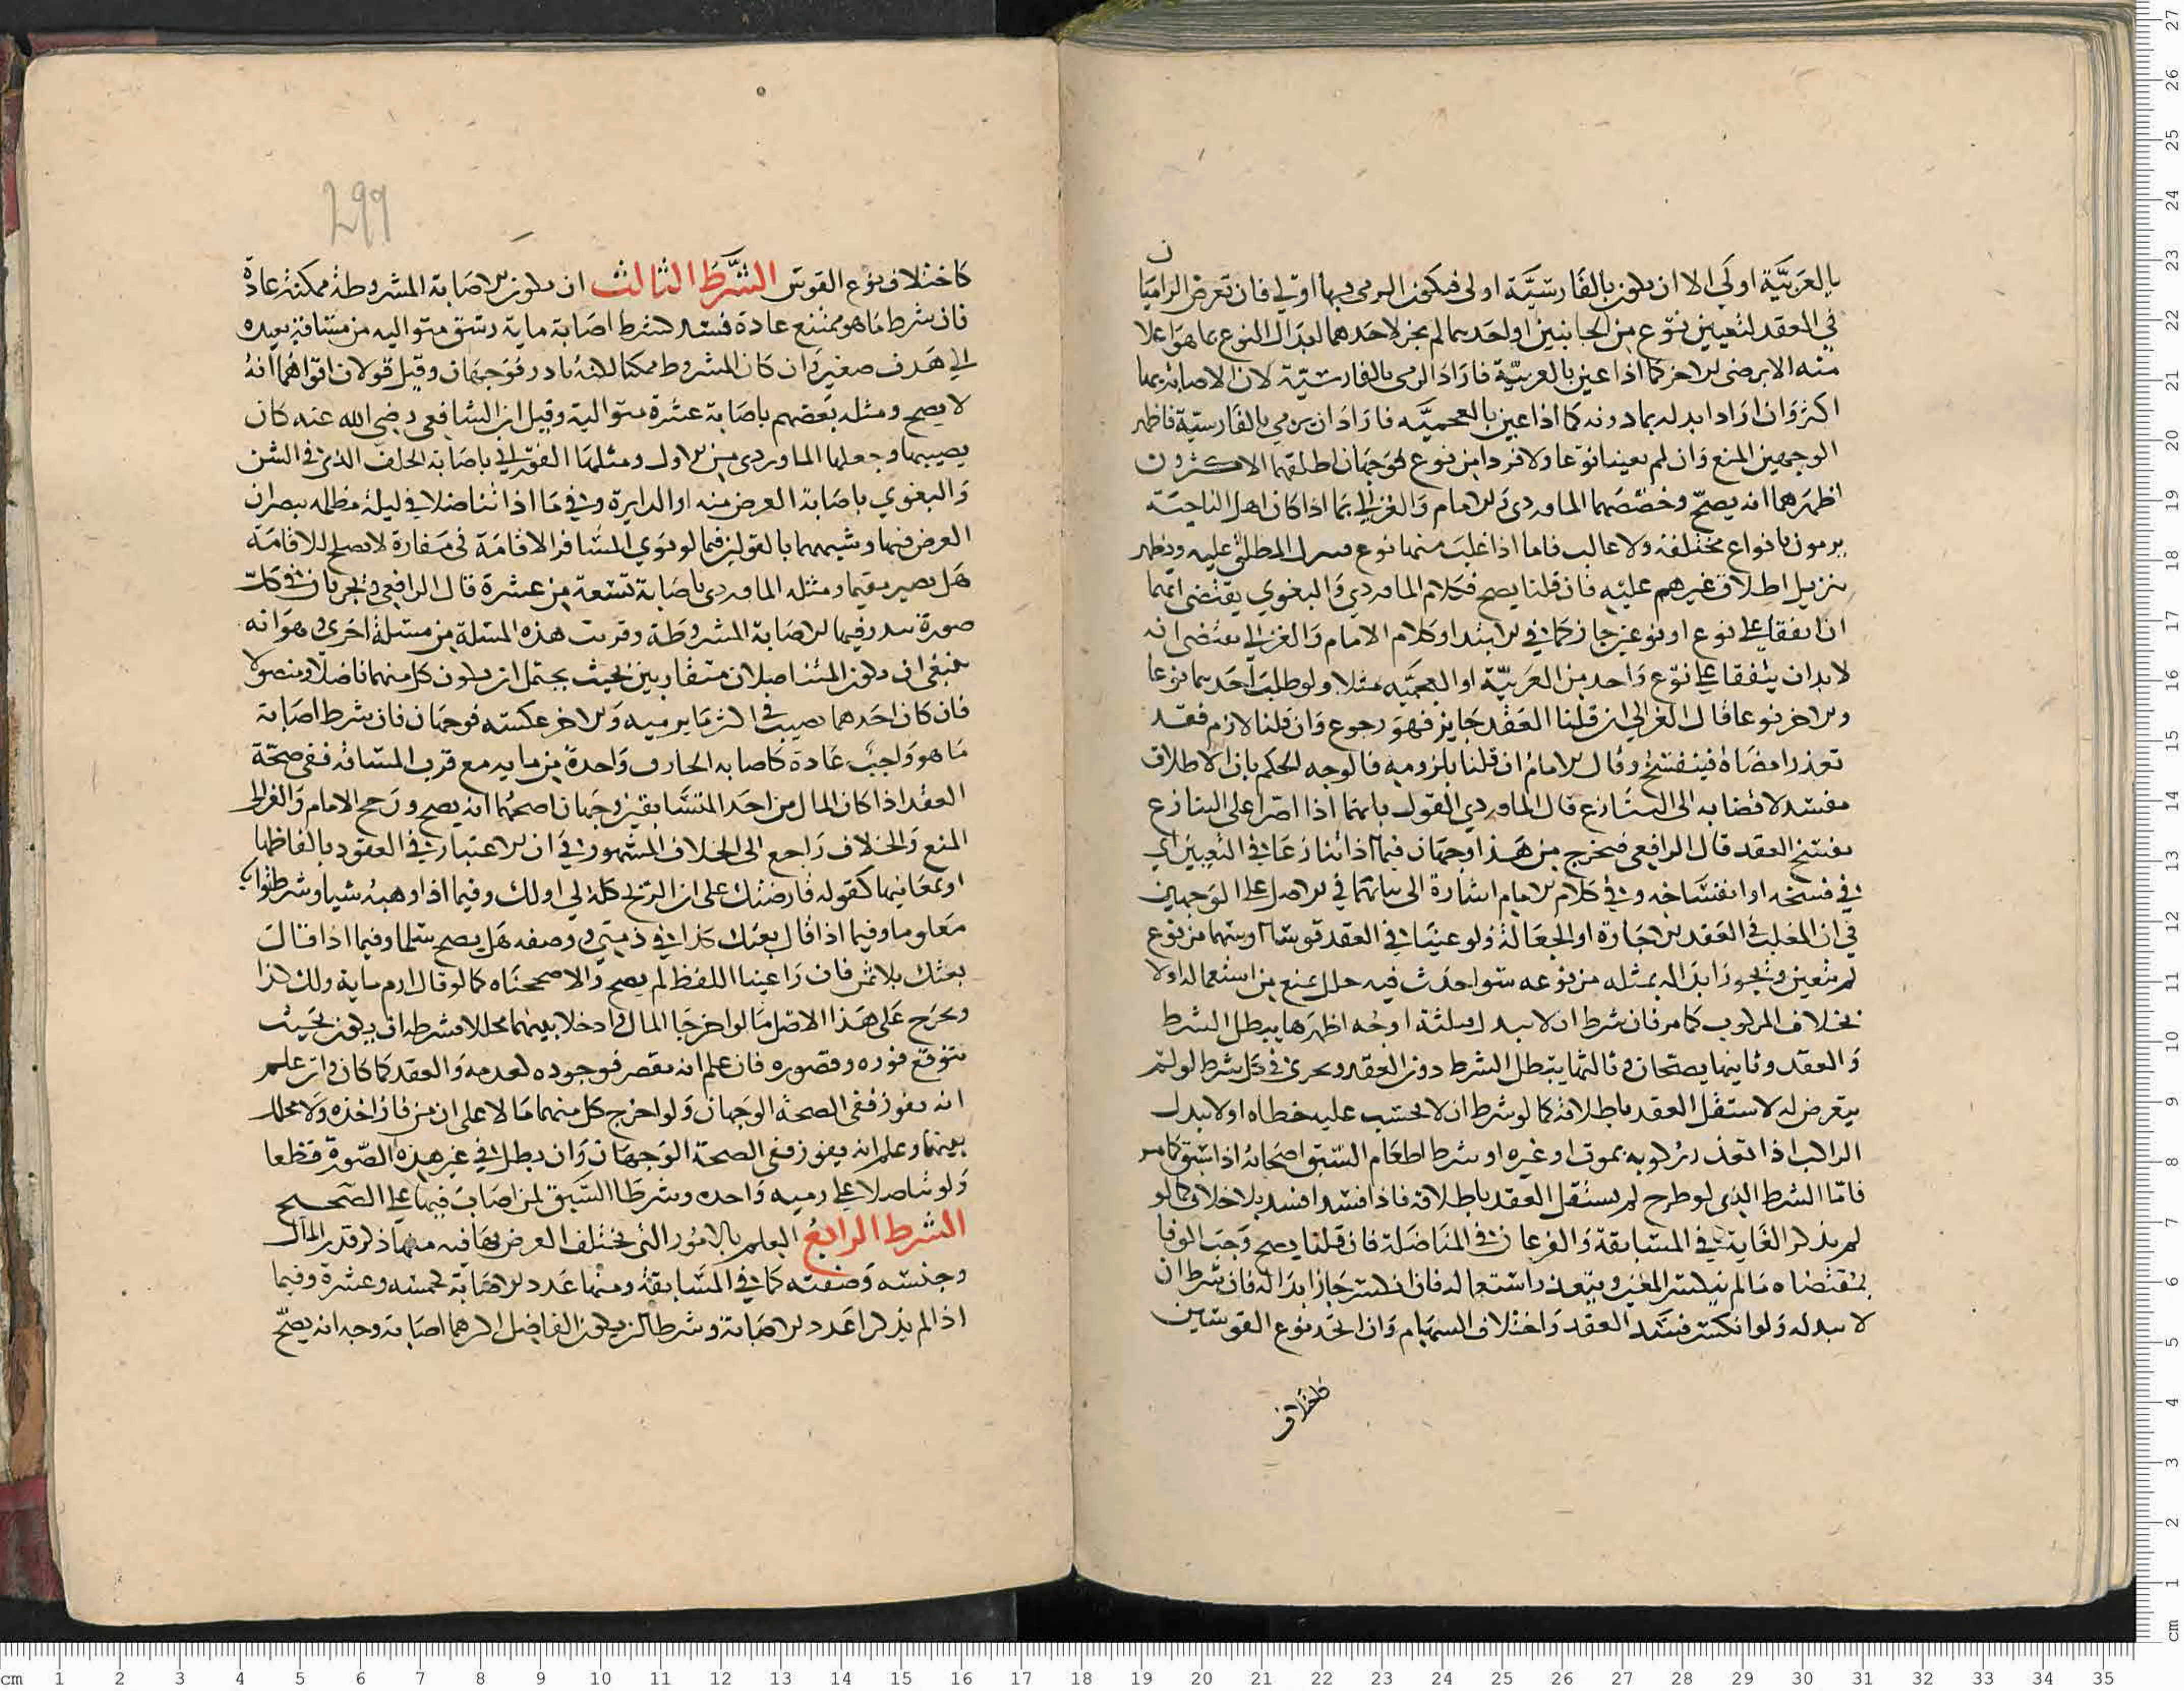 بالعربية اولى الا ان يكون بالفارسية اولى فيكون الرمى بها اولى فان تعرض الراميا
ن
فى العقد لتعيين نوع من الجانبين او احدهما لم يجز لاحدهما ابدال النوع بما هو اعلا
منه الا برضى الاخر كما اذا عين بالعربية فاراد الرمى بالفارسية لان الاصابة بها
اكثر وان اراد ابدله بما دونه كما اذا عين بالعجميه فاراد ان يرمي بالفارسية فاظهر
الوجهين المنع وان لم يعينا نوعا ولا فردا من نوع فوجهان اطلقهما الاكثرون
اظهرهما انه يصح وخصصهما الماوردى والامام والغزالي بما اذا كان اهل الناحية
يرمون بانواع مختلفة ولا غالب فاما اذا غلب منها نوع المطلق عليه ويظهر
تنزيل اطلاق غيرهم عليه فان قلنا يصح فكلام الماوردي والبغوي يقتضى انهما
اذا اتفقا على نوع او نوعين جاز كما في الابتدا وكلام الامام والغزالي يقتضى انه
لابد ان يتفقا على نوع واحد من العربية او العجميه مثلا ولو طلب احدهما نوعا
والاخر نوعا قال الغزالي ان قلنا العقد جايز فهو رجوع وان قلنا لازم فقد
تعذر امضاه فينفسخ وقال الامام ان قلنا بلزومه فالوجه الحكم بان الاطلاق
مفسد لافضايه الى التنازع قال الماوردي القول بانهما اذا اصرا على التنازع
يفسخ العقد قال الرافعي فيخرج من هذا وجهان فيما اذا تنازعا في التعيين اي
في فسخه او انفساخه وفي كلام الامام اشارة الى بنائهما في الاصل على الوجهين
في ان المغلب في العقد الاجارة او الجعالة ولو عينا في العقد قوسا او سهما من نوع
لم يتعين ويجوز ابداله بمثله من نوعه سوا حدث فيه خلل يمنع من استعماله او لا
بخلاف المركوب كما مر فان شرط ان لا يبدل فثلثة اوجه اظهرها يبطل الشرط
والعقد وثانيها يصحان وثالثها يبطل الشرط دون العقد ويجرى في كل شرط لو لم
يتعرض له لاستقل العقد باطلاقه كما لو شرط ان لا يحتسب عليه خطاه او لا يبدل
الراكب اذا تعذر ركوبه بموت او غيره او شرط اطعام السبق اصحابه اذا سبق كما مر
فاما الشرط الذى لو طرح لم يستقل العقد باطلاقه فاذا فسد افسد بلا خلاف كما لو
لم يذكر الغاية في المسابقة والفرعان في المناضلة فان قلنا يصح وجب الوفا
بمقتضاه ما لم ينكسر المعين ويتعذر استعماله فان انكسر جاز ابداله فان شرط ان
لا يبدله ولو انكسر فسد العقد واختلاف السهام وان اتحد نوع القوسين
كاختلاف
299
كاختلاف نوع القوس الشرط الثالث ان يكون الاصابة المشروطة ممكنة عادة
فان شرط ما هو ممتنع عادة فسد كشرط اصابة ماية رشق متواليه من مسافة بعيده
الى هدف صغير وان كان المشروط ممكنا لكنه نادر فوجهان وقيل قولان اقواهما انه
لا يصح ومثله بعضهم باصابة عشرة متوالية وقيل ان الشافعي رضي الله عنه كان
يصيبها وجعلها الماوردى من الاول ومثلها باصابة الحلقة الذي في الشن
والبغوي باصابة العرض منه او الدايرة وفي ما اذا تناضلا في ليلة مظلمه يبصران
العرض فيها وشبههما بالقولين فيما لو نوى المسافر الاقامة في مفازة لا تصلح للاقامة
هل يصير مقيما ومثله الماوردى باصابة تسعة من عشرة قال الرافعي ويجريان في كل
صورة يندر فيها الاصابة المشروطة وقربت هذه المسلة من مسئلة اخرى وهو انه
ينبغي ان يكون المتناضلان متقاربين بحيث يحتمل ان يكون كل منهما ناضلا ومنضولا
فان كان احدهما يصيب في اكثر ما يرميه والاخر عكسته فوجهان فان شرط اصابة
ما هو واجب عادة كاصابة الحاذق واحدة من مايه مع قرب المسافة ففي صحة
العقد اذا كان المال من احد المتسابقين وجهان اصحهما انه يصح ورجح الامام والغزالي
المنع والخلاف راجع الى الخلاف المشهور في ان الاعتبار في العقود بالفاظها
او بمعانيها كقوله قارضتك على ان الربح كله لي او لك وفيما اذا وهبه شيا وشرط ثوابا
معلوما وفيما اذا قال بعتك كذا في ذمتي ووصفه هل يصح سلما وفيما اذا قال
بعتك بلا ثمن فان راعينا اللفظ لم يصح والا صححناه كما لو قال ارم ماية ولك كذا
ويخرج على هذا الاصل ما لو اخرجا المال وادخلا بينهما محللا فشرطه ان يكون بحيث
يتوقع فوزه وقصوره فان علم انه يقصر فوجوده كعدمه والعقد كما كان وان علم
انه يفوز ففى الصحة الوجهان ولو اخرج كل منهما مالا على ان من فاز اخذه ولا محلل
بينهما وعلم انه يفوز ففى الصحة الوجهان وان بطل في غير هذه الصورة قطعا
ولو تناضلا على رميه واحده وشرطا السبق لمن اصاب فيها على الصحيح
الشرط الرابع العلم بالامور التى يختلف العرض بها فيه منها ذكر قدر المال
وجنسه وصفته كما في المسابقة ومنها عدد الاصابة كخمسه وعشرة وفيما
اذا لم يذكرا عدد الاصابة وشرطا ان يكون الفاضل اكثرهما اصابة وجه انه يصح